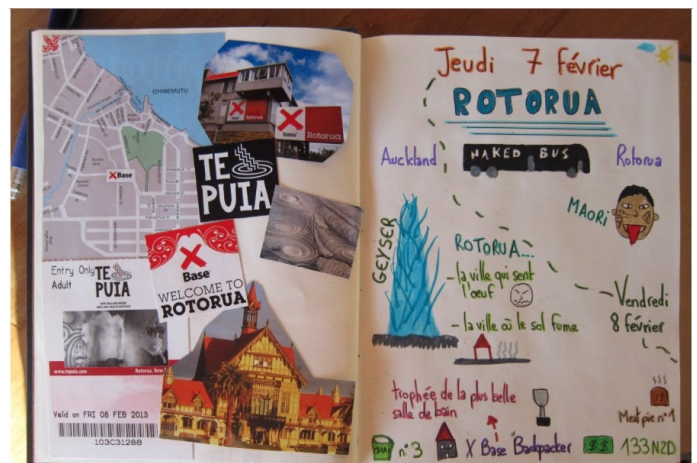 OHINEMUTU
X Base
X Rotorua
X
base Rotorua
TE
PUIA
X
Base
WELCOME TO
ROTORUA
Entry Only
Adult
TE
PUIA
www.tepuia.com
Rotorua, New
Valid on FRI 08 FEB 2013
103C31288
Jeudi 7 février
ROTORUA
Auckland
NAKED BUS
Rotorua
MAORI
GEYSER
ROTORUA...
- la ville qui sent
l'œuf
- la ville où le sol fume
Vendredi
8 février
trophée de la plus belle
salle de bain
Meat pie n°1
n°3
X Base Backpacker
$ $
133NZD